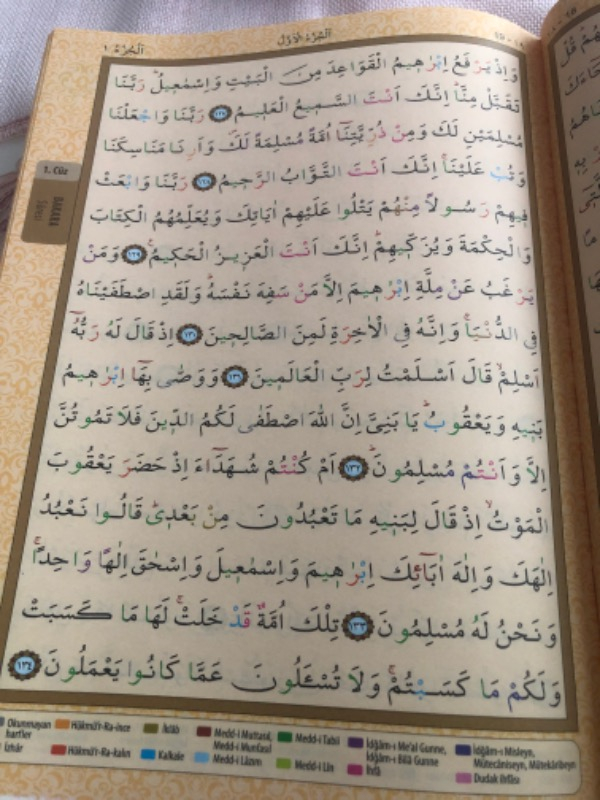 ١٩ - ١٥
اَلْجُزْءُ الْاَوَّلُ
اَلْجُزْءُ ١
وَاِذْ يَرْفَعُ اِبْرٰهٖيمُ الْقَوَاعِدَ مِنَ الْبَيْتِ وَاِسْمٰعٖيلُۜ رَبَّنَا
تَقَبَّلْ مِنَّاۜ اِنَّكَ اَنْتَ السَّمٖيعُ الْعَلٖيمُ ﴿١٢٧﴾ رَبَّنَا وَاجْعَلْنَا
مُسْلِمَيْنِ لَكَ وَمِنْ ذُرِّيَّتِنَٓا اُمَّةً مُسْلِمَةً لَكَۖ وَاَرِنَا مَنَاسِكَنَا
وَتُبْ عَلَيْنَاۚ اِنَّكَ اَنْتَ التَّوَّابُ الرَّحٖيمُ ﴿١٢٨﴾ رَبَّنَا وَابْعَثْ
فٖيهِمْ رَسُولًا مِنْهُمْ يَتْلُوا عَلَيْهِمْ اٰيَاتِكَ وَيُعَلِّمُهُمُ الْكِتَابَ
وَالْحِكْمَةَ وَيُزَكّٖيهِمْۜ اِنَّكَ اَنْتَ الْعَزٖيزُ الْحَكٖيمُ۟ ﴿١٢٩﴾ وَمَنْ
يَرْغَبُ عَنْ مِلَّةِ اِبْرٰهٖيمَ اِلَّا مَنْ سَفِهَ نَفْسَهُۜ وَلَقَدِ اصْطَفَيْنَاهُ
فِي الدُّنْيَاۚ وَاِنَّهُ فِي الْاٰخِرَةِ لَمِنَ الصَّالِحٖينَ ﴿١٣٠﴾ اِذْ قَالَ لَهُ رَبُّهُٓ
اَسْلِمْۙ قَالَ اَسْلَمْتُ لِرَبِّ الْعَالَمٖينَ ﴿١٣١﴾ وَوَصّٰى بِهَٓا اِبْرٰهٖيمُ
بَنٖيهِ وَيَعْقُوبُۜ يَا بَنِيَّ اِنَّ اللّٰهَ اصْطَفٰى لَكُمُ الدّٖينَ فَلَا تَمُوتُنَّ
اِلَّا وَاَنْتُمْ مُسْلِمُونَۜ ﴿١٣٢﴾ اَمْ كُنْتُمْ شُهَدَٓاءَ اِذْ حَضَرَ يَعْقُوبَ
الْمَوْتُۙ اِذْ قَالَ لِبَنٖيهِ مَا تَعْبُدُونَ مِنْ بَعْدٖيۜ قَالُوا نَعْبُدُ
اِلٰهَكَ وَاِلٰهَ اٰبَٓائِكَ اِبْرٰهٖيمَ وَاِسْمٰعٖيلَ وَاِسْحٰقَ اِلٰهًا وَاحِدًاۚ
وَنَحْنُ لَهُ مُسْلِمُونَ ﴿١٣٣﴾ تِلْكَ اُمَّةٌ قَدْ خَلَتْۚ لَهَا مَا كَسَبَتْ
وَلَكُمْ مَا كَسَبْتُمْۚ وَلَا تُسْـَٔلُونَ عَمَّا كَانُوا يَعْمَلُونَ ﴿١٣٤﴾
1. Cüz
BAKARA
Sûresi
Okunmayan harfler
Hükmü'r-Ra-ince
İklâb
Medd-i Muttasıl, Medd-i Munfasıl
Medd-i Tabii
İdğâm-ı Me'al Gunne, İdğâm-ı Bilâ Gunne
İdğâm-ı Misleyn, Mütecâniseyn, Mütekâribeyn
İzhâr
Hükmü'r-Ra-kalın
Kalkale
Medd-i Lâzım
Medd-i Lin
İhfâ
Dudak İhfâsı